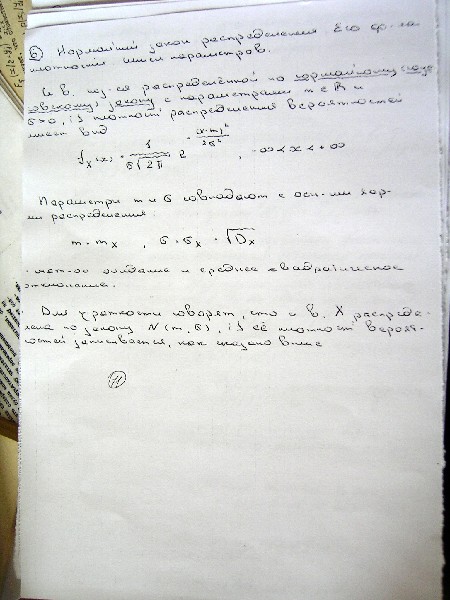 ⑥ Нормальный закон распределения Его ф-ла
плотности. Смысл параметров.
С. в. наз-ся распределённой по нормальному
закону с параметрами m ∈ R и
σ>0, if плотность распределения вероятностей
имеет вид
f_X(x) = 1/(σ√2π) e^(-(x-m)²/2σ²) , -∞ < x < +∞
Параметры m и σ совпадают с осн-ми хар-
ми распределения:
m = m_X , σ = σ_X = √D_X
- мат-ое ожидание и среднее квадратическое
отклонение.
Для краткости говорят, что с. в. X распреде-
лена по закону N(m, σ), if её плотность вероят-
ностей записывается, как указано выше